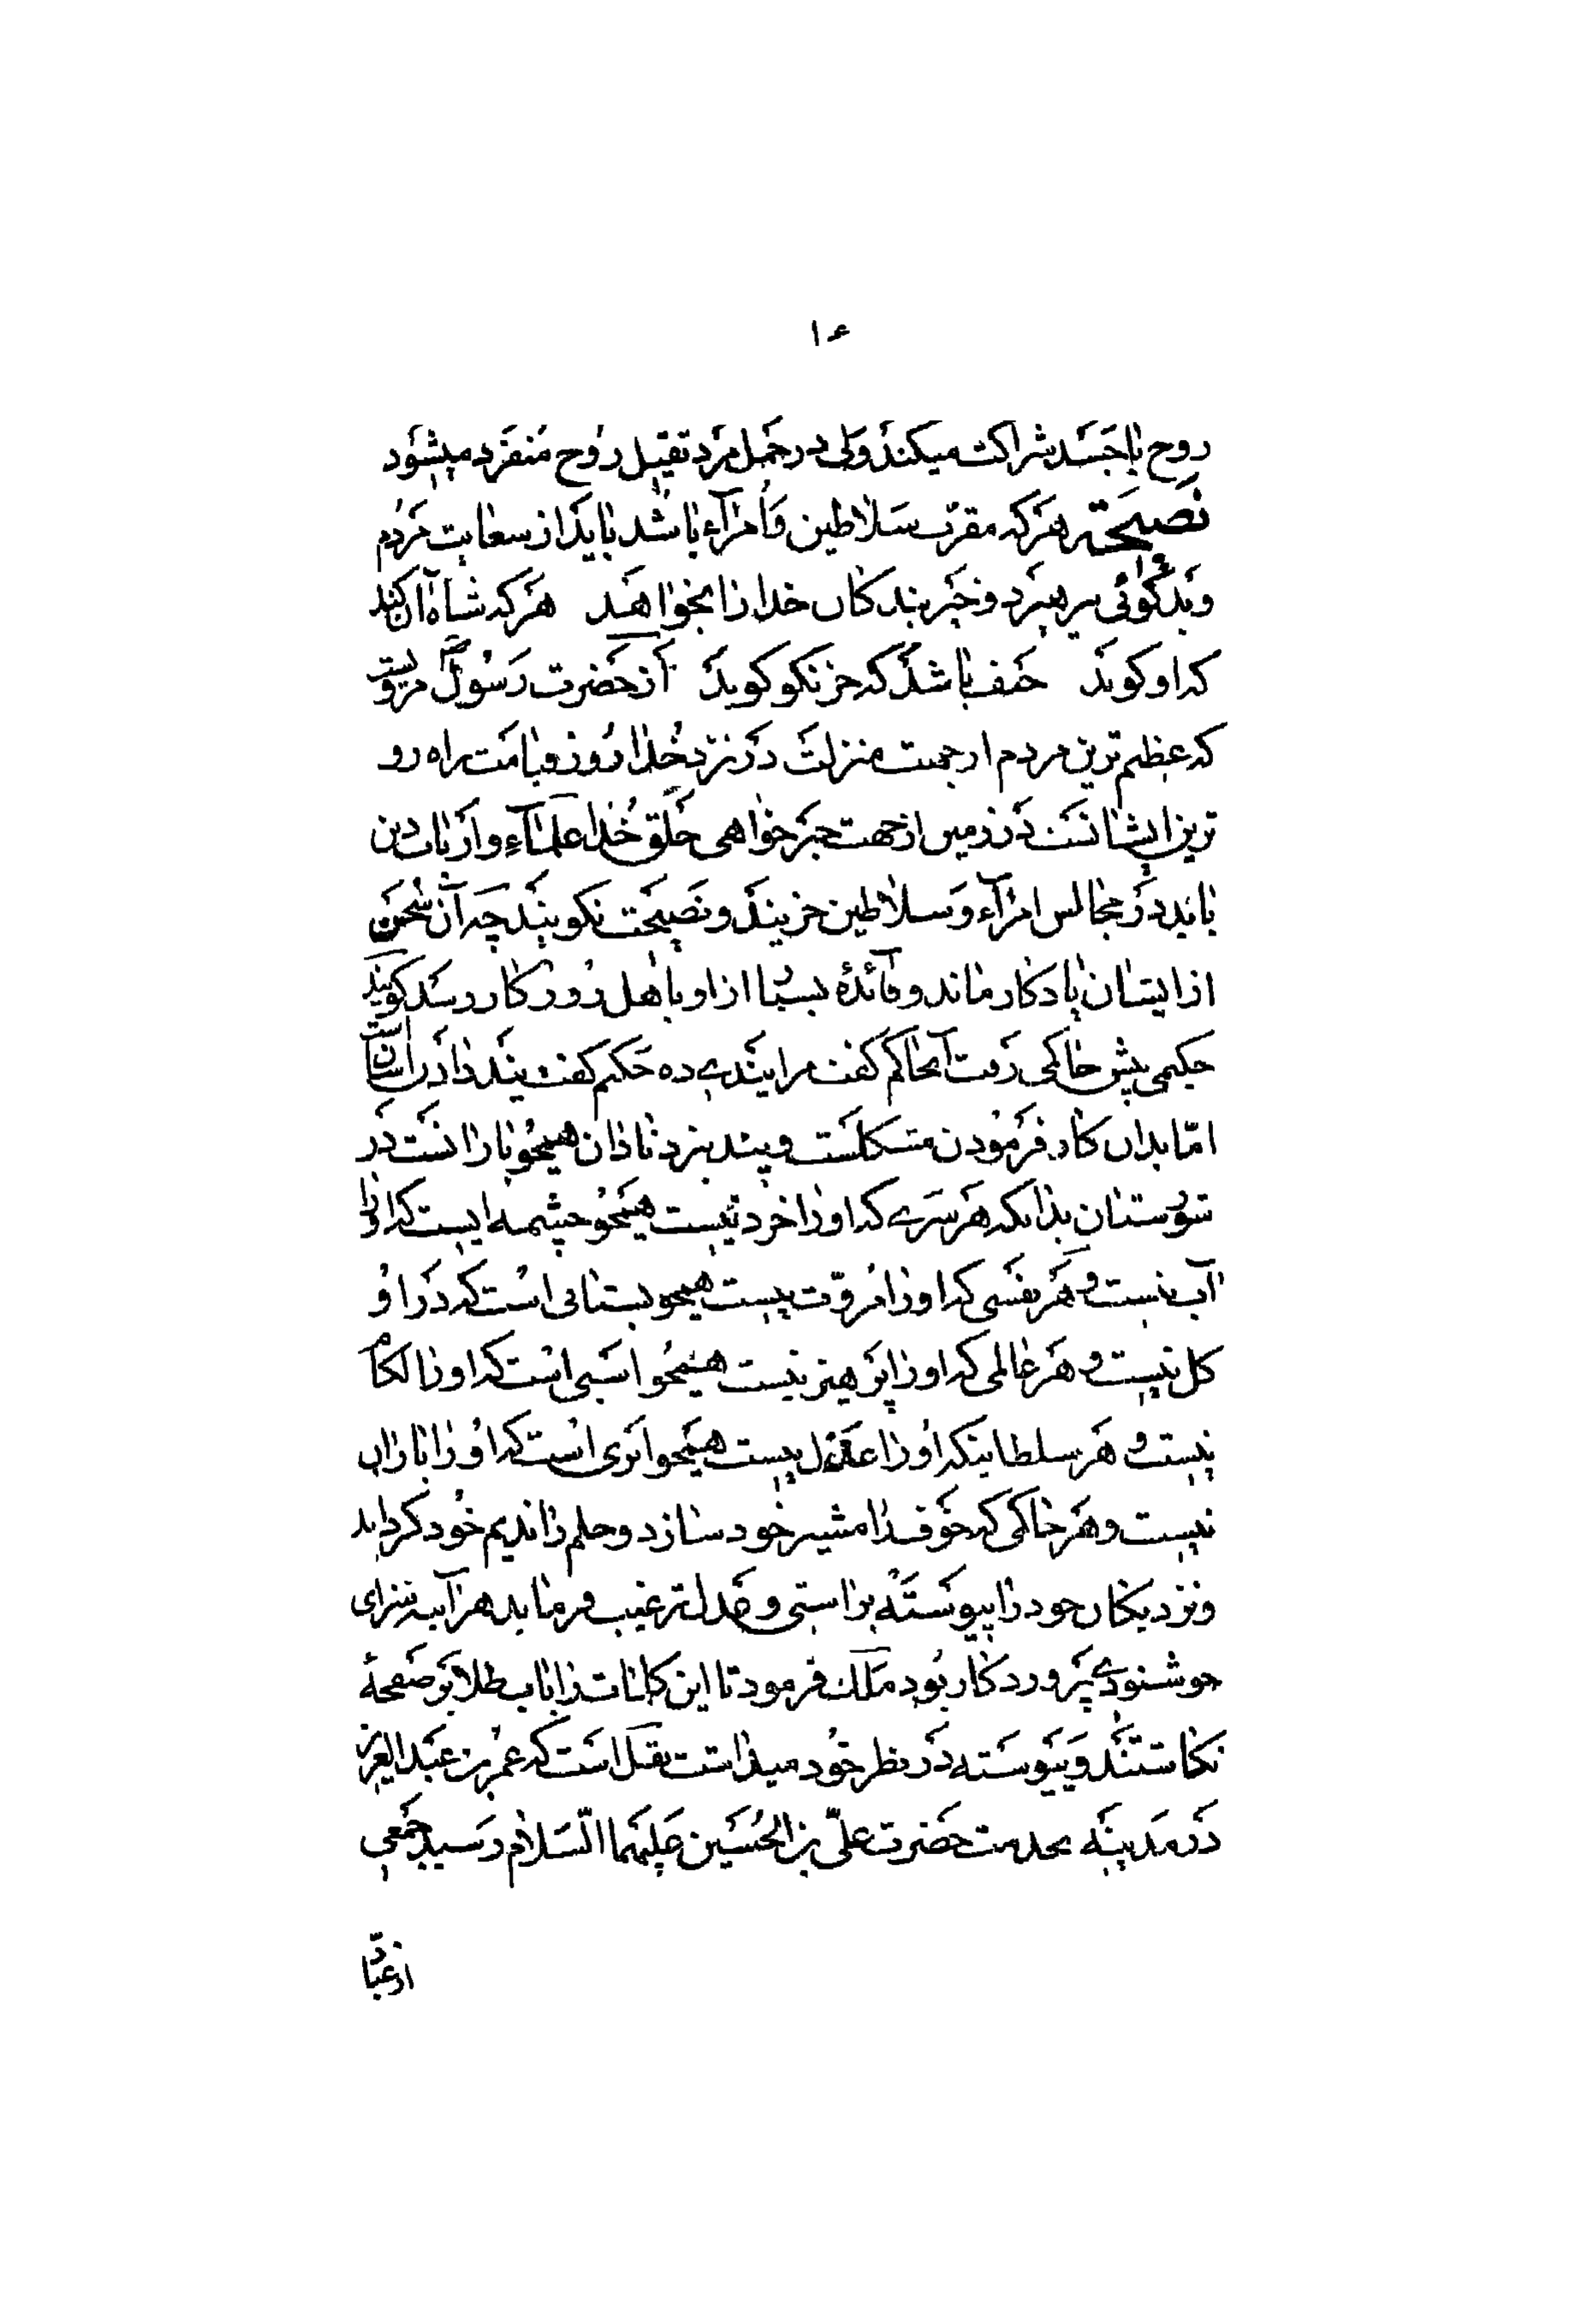 ۱۶
روح با جسد شراکت میکند ولی در حمل مرد ثقیل روح منفرد میشود
نصیحة هر که مقرب سلاطین و امرآء باشد باید از سعایت مردم
و بدکوئی بپرهیزد و خیر بندکان خدا را بخواهد هر که شاه آن کند
که او کوید حیف باشد که جز نکو کوید از حضرت رسول ص مرویست
که عظیم ترین مردم از جهت منزلت در نزد خدا روز قیامت راه رو
ترین ایشانست در زمین از جهت خیر خواهی خلق خدا علمآء و ارباب دین
باید در مجالس امرآء و سلاطین جز پند و نصیحت نکویند چه آن سخن
از ایشان یادکار ماند و فآئدۀ بسیار از او باهل روزکار رسد کویند
حکیمی پیش حاکمی رفت آنحاکم کفت مرا پندی ده حکیم کفت پند دادن آسان است
امّا بدان کار فرمودن مشکلست و پند بنزد نادان همچو بارانست در
شورستان بدانکه هر سری که او را خرد نیست همچو چشمه ایست که او را
آب نیست و هر نفسی که او را مروّت نیست همچو بستانی است که در او
کل نیست و هر عالمی که او را پرهیز نیست همچو اسبی است که او را لکام
نیست و هر سلطانیکه او را عدل نیست همچو ابری است که او را باران
نیست و هر حاکمی که خوف را مشیر خود سازد و حلم را ندیم خود کرداند
و نزدیکان خود را پیوسته براستی و عدل ترغیب فرماید هرآینه سزای
خوشنودی پروردکار بود ملک فرمود تا این کلمات را باب طلا بر صفحۀ
نکاشتند و پیوسته در نظر خود میداشت نقل است که عمر بن عبدالعزیز
در مدینه بخدمت حضرت علیّ بن الحسین علیهما السّلام رسید جمعی
از عبّاد